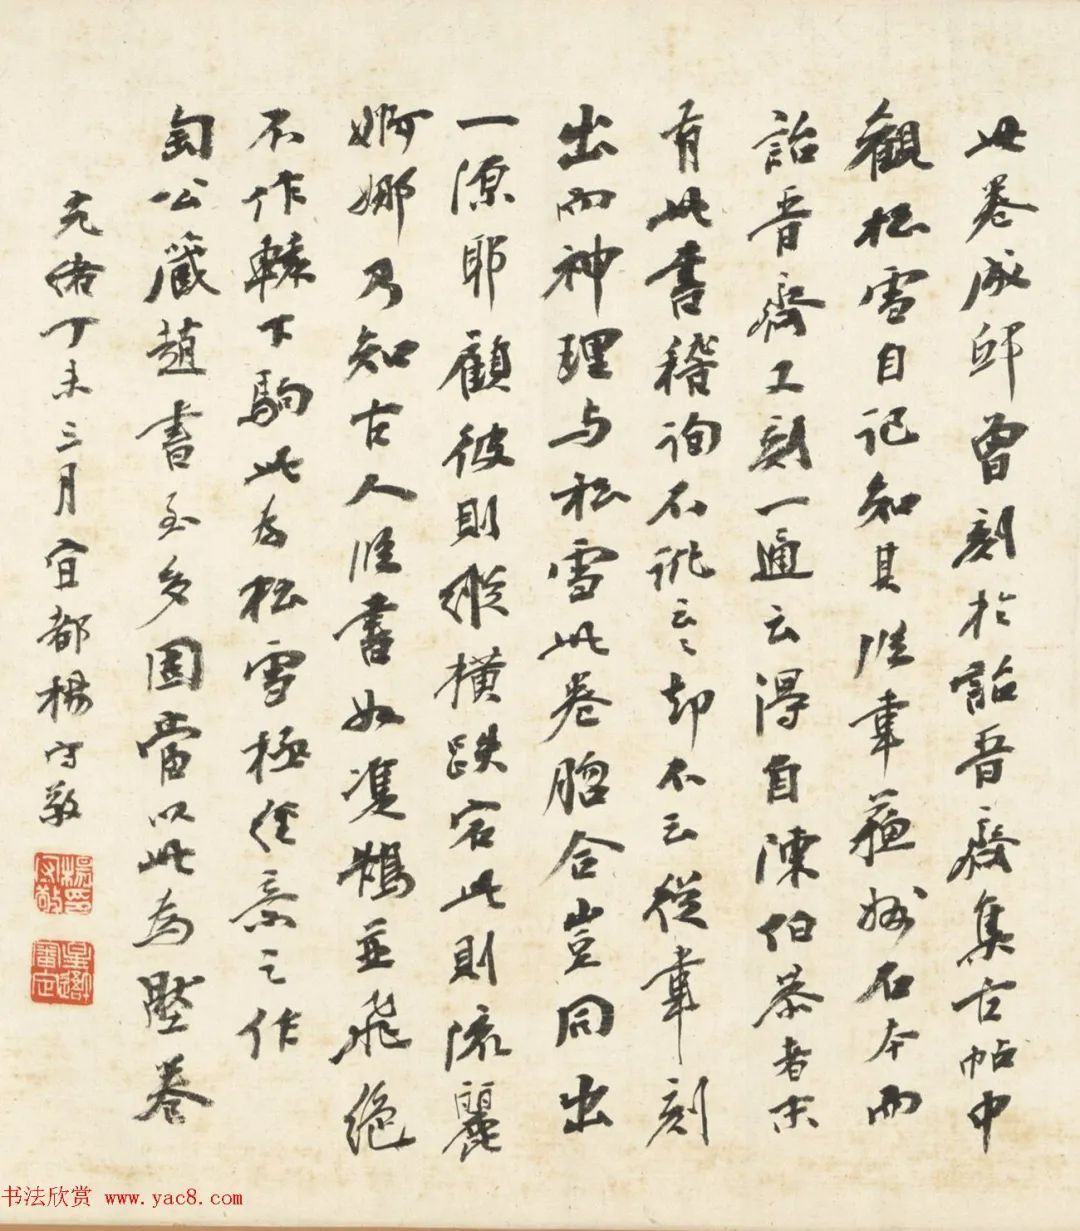 此卷成邸曾刻於詒晉齋集古帖中
觀松雪自記知其從韋蘇州石本而
詒晉齋又刻一通云得自陳伯恭者末
有此書稽詢不訛云云却不云從韋刻
出而神理与松雪此卷脗合豈同出
一源耶顧彼則縱橫跌宕此則流麗
婀娜乃知古人臨書如雙鵠並飛絕
不作轅下駒此為松雪極經意之作
匋公藏趙書至多固當以此為壓卷
光緒丁未三月宜都楊守敬
楊守敬印
星吾審定
书法欣赏 www.yac8.com